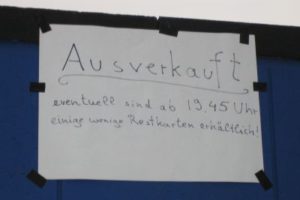 Ausverkauft
eventuell sind ab 19,45 Uhr
einige wenige Restkarten erhältlich!